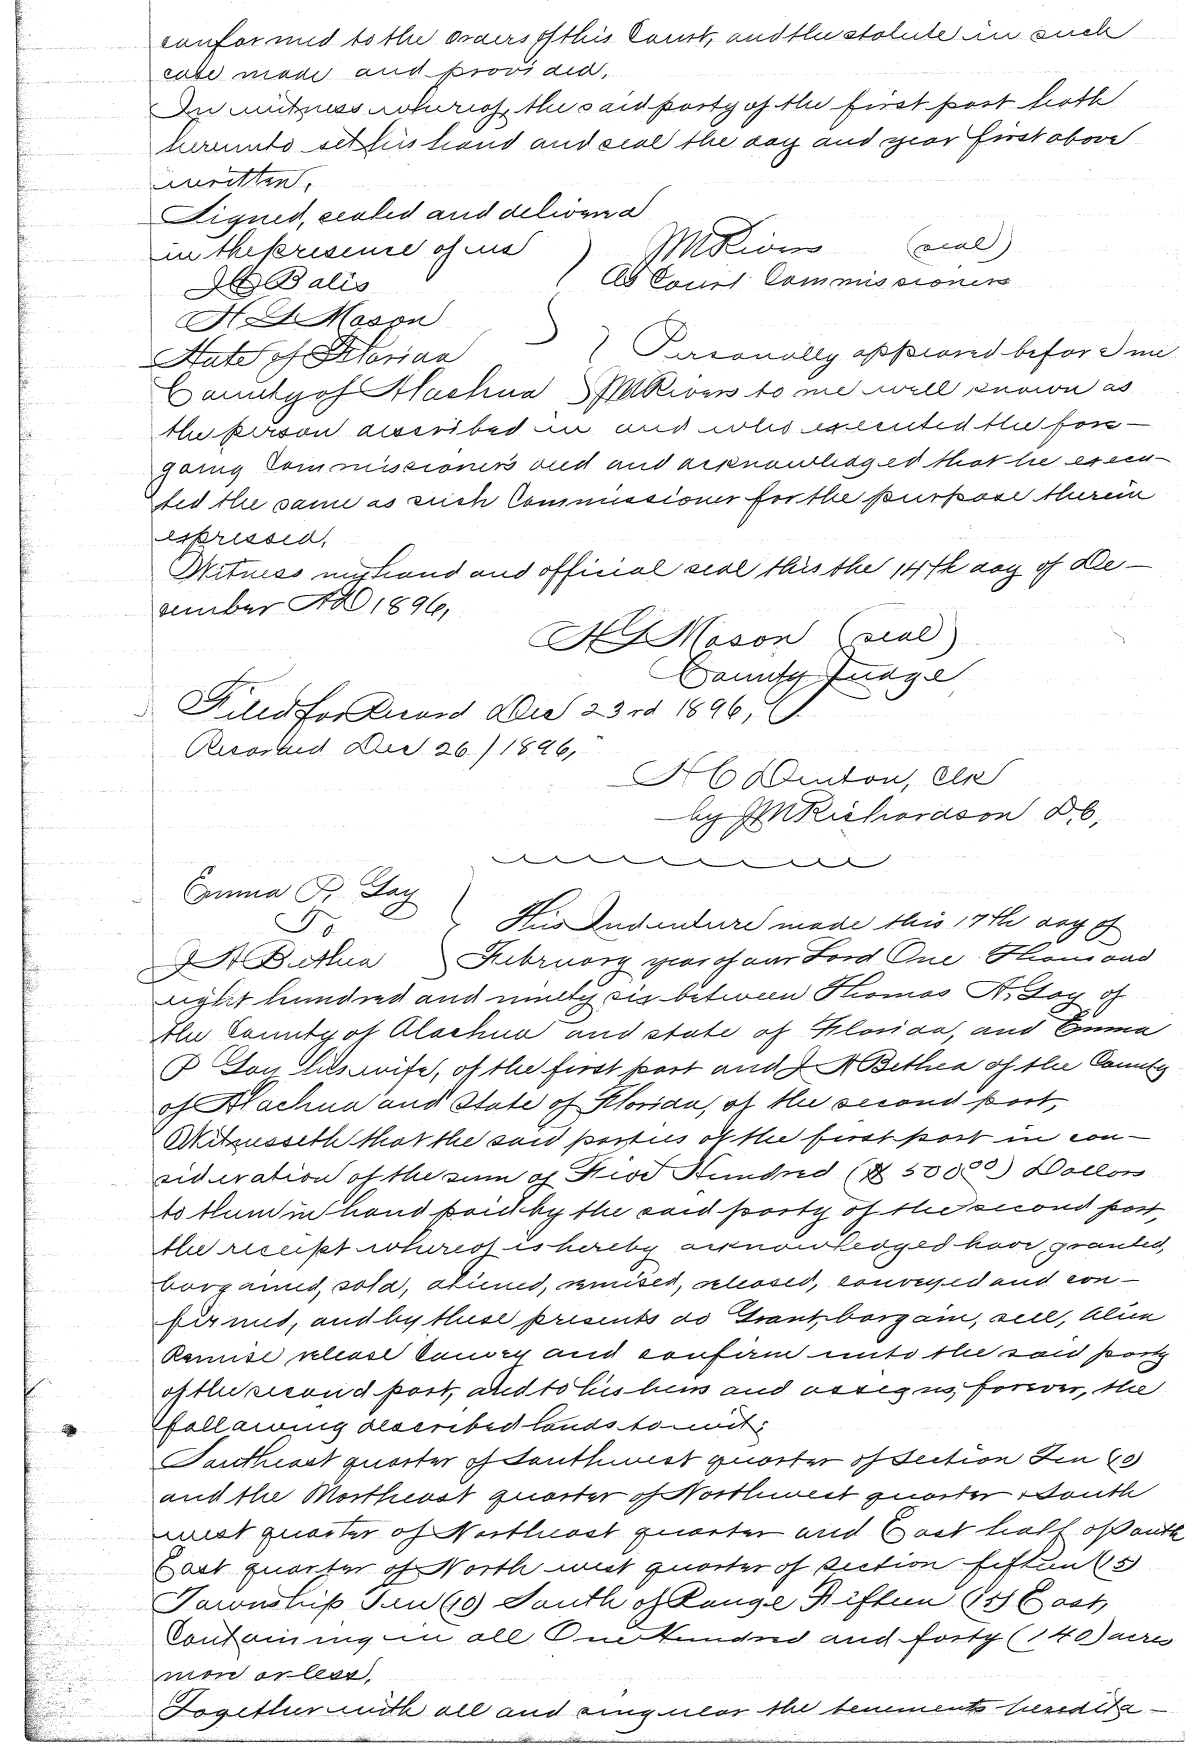 conformed to the orders of this Court, and the statute in such
case made and provided,
In witness whereof, the said party of the first part hath
hereunto set his hand and seal the day and year first above
written,
Signed, sealed and delivered
in the presence of us ) JM Rivers (seal)
JG Balis ( As Court Commissioner
H G Mason
State of Florida ) Personally appeared before me
County of Alachua ) JM Rivers to me well known as
the person described in and who executed the fore-
going Commissioners deed and acknowledged that he execu-
ted the same as such Commissioner for the purpose therein
expressed,
Witness my hand and official seal this the 14th day of De-
cember AD 1896,
H G Mason (seal)
County Judge
Filed for Record Dec 23rd 1896,
Recorded Dec 26/1896,
H C Denton, Clk
by JM Richardson D.C,
Emma P. Gay
To
This Indenture made this 17th day of
J A Bethea ) February year of our Lord One Thousand
eight hundred and ninety six between Thomas A. Gay of
the County of Alachua and state of Florida, and Emma
P Gay his wife, of the first part and J A Bethea of the County
of Alachua and State of Florida, of the second part,
Witnesseth that the said parties of the first part in con-
sideration of the sum of Five Hundred ($ 500.00) Dollars
to them in hand paid by the said party of the second part,
the receipt whereof is hereby acknowledged have granted,
bargained, sold, aliened, remised, released, conveyed and con-
firmed, and by these presents do Grant, bargain, sell, Alien
Remise release Convey and confirm unto the said party
of the second part, and to his heirs and assigns, forever, the
following described lands to-wit;
Southeast quarter of Southwest quarter of Section Ten (10)
and the Northeast quarter of Northwest quarter & South
west quarter of Northeast quarter and East half of South
East quarter of North west quarter of section fifteen (15)
Township Ten (10) South of Range Fifteen (15) East,
Containing in all One Hundred and forty (140) acres
more or less,
Together with all and singular the tenements heredita-